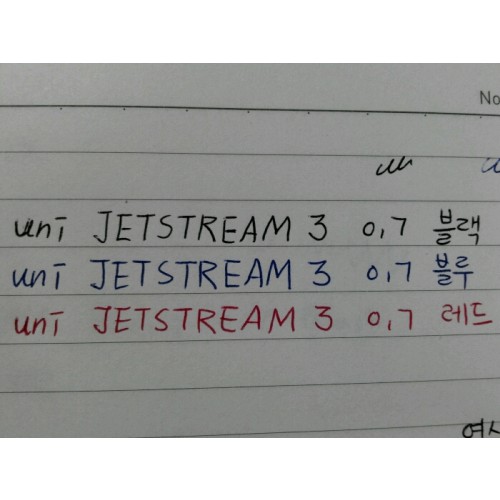 No
uni JETSTREAM 3 0,7 블랙
uni JETSTREAM 3 0,7 블루
uni JETSTREAM 3 0,7 레드